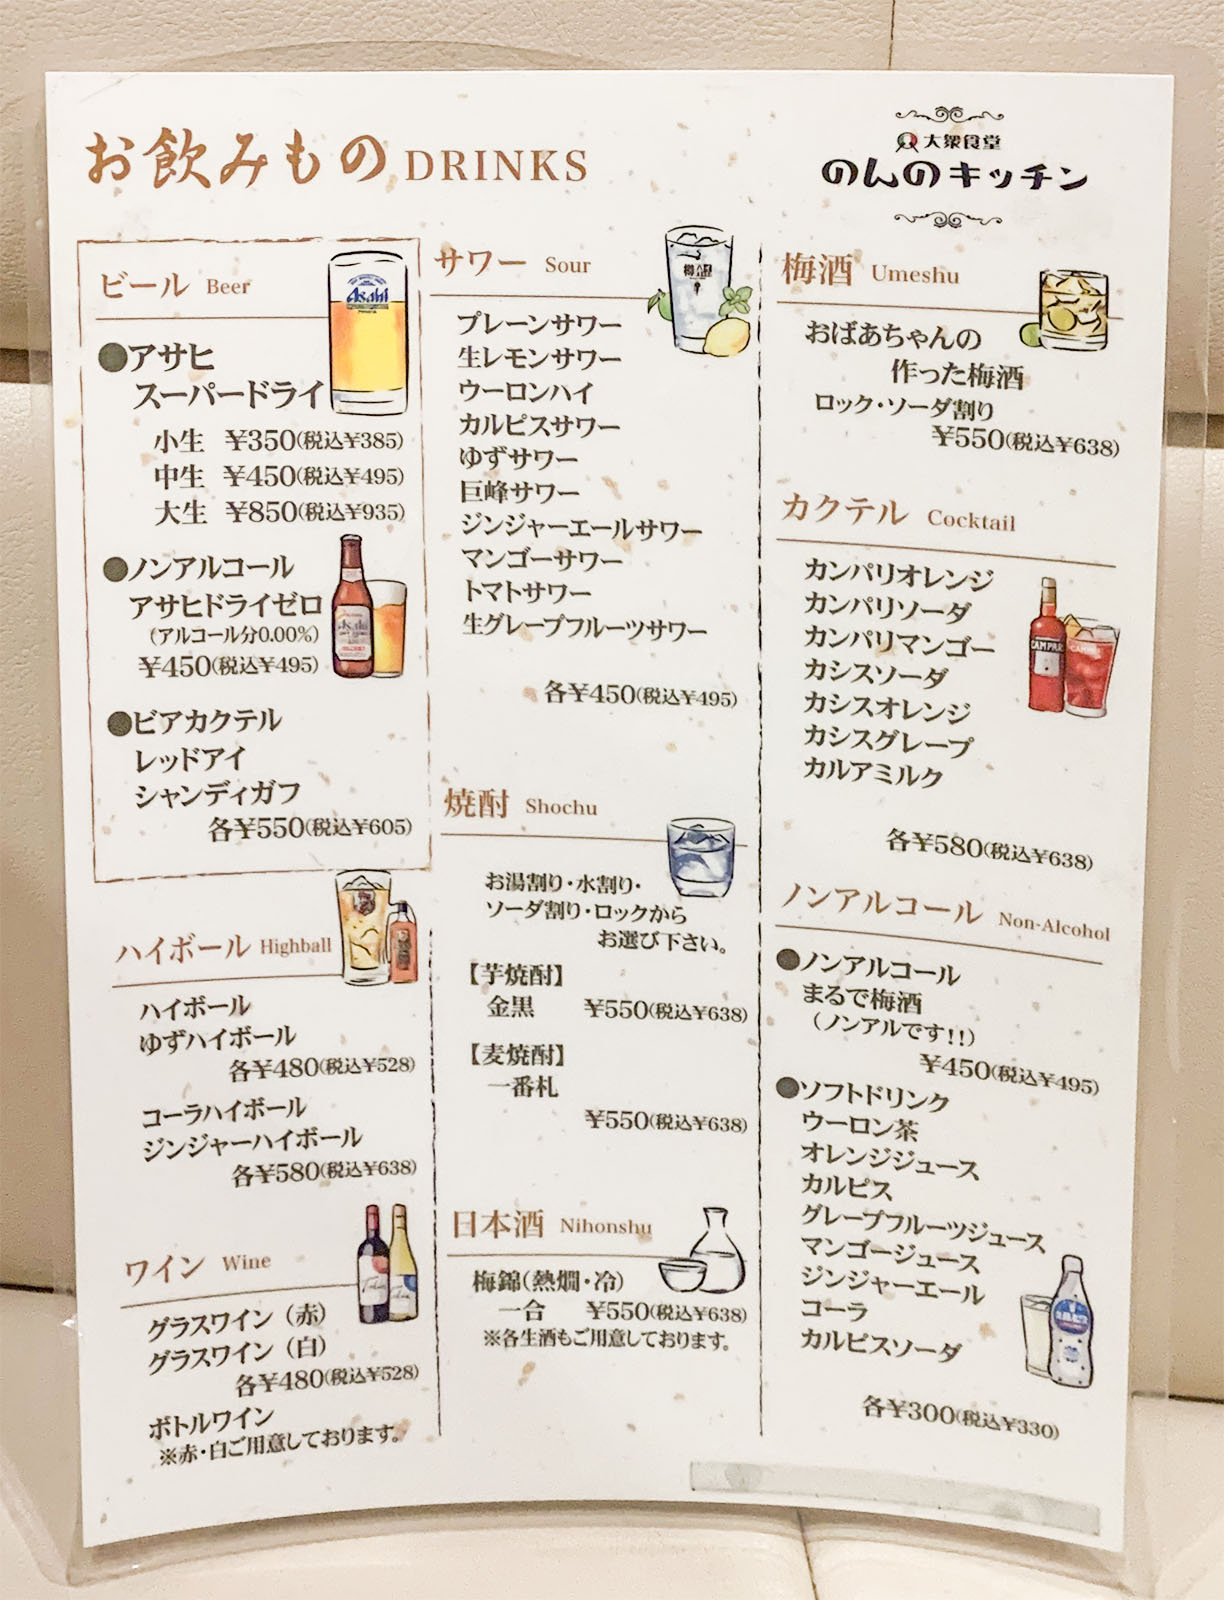 お飲みもの DRINKS
大衆食堂
のんのキッチン
ビール Beer
●アサヒ
スーパードライ
小生 ¥350(税込¥385)
中生 ¥450(税込¥495)
大生 ¥850(税込¥935)
●ノンアルコール
アサヒドライゼロ
(アルコール分0.00%)
¥450(税込¥495)
●ビアカクテル
レッドアイ
シャンディガフ
各¥550(税込¥605)
ハイボール Highball
ハイボール
ゆずハイボール
各¥480(税込¥528)
コーラハイボール
ジンジャーハイボール
各¥580(税込¥638)
ワイン Wine
グラスワイン（赤）
グラスワイン（白）
各¥480(税込¥528)
ボトルワイン
※赤・白ご用意しております。
サワー Sour
プレーンサワー
生レモンサワー
ウーロンハイ
カルピスサワー
ゆずサワー
巨峰サワー
ジンジャーエールサワー
マンゴーサワー
トマトサワー
生グレープフルーツサワー
各¥450(税込¥495)
焼酎 Shochu
お湯割り・水割り・
ソーダ割り・ロックから
お選び下さい。
【芋焼酎】
金黒 ¥550(税込¥638)
【麦焼酎】
一番札
¥550(税込¥638)
日本酒 Nihonshu
梅錦(熱燗・冷)
一合 ¥550(税込¥638)
※各生酒もご用意しております。
梅酒 Umeshu
おばあちゃんの
作った梅酒
ロック・ソーダ割り
¥550(税込¥638)
カクテル Cocktail
カンパリオレンジ
カンパリソーダ
カンパリマンゴー
カシスソーダ
カシスオレンジ
カシスグレープ
カルアミルク
各¥580(税込¥638)
ノンアルコール Non-Alcohol
●ノンアルコール
まるで梅酒
（ノンアルです!!）
¥450(税込¥495)
●ソフトドリンク
ウーロン茶
オレンジジュース
カルピス
グレープフルーツジュース
マンゴージュース
ジンジャーエール
コーラ
カルピスソーダ
各¥300(税込¥330)
Asahi
Asahi
CAMPARI
CAMPARI